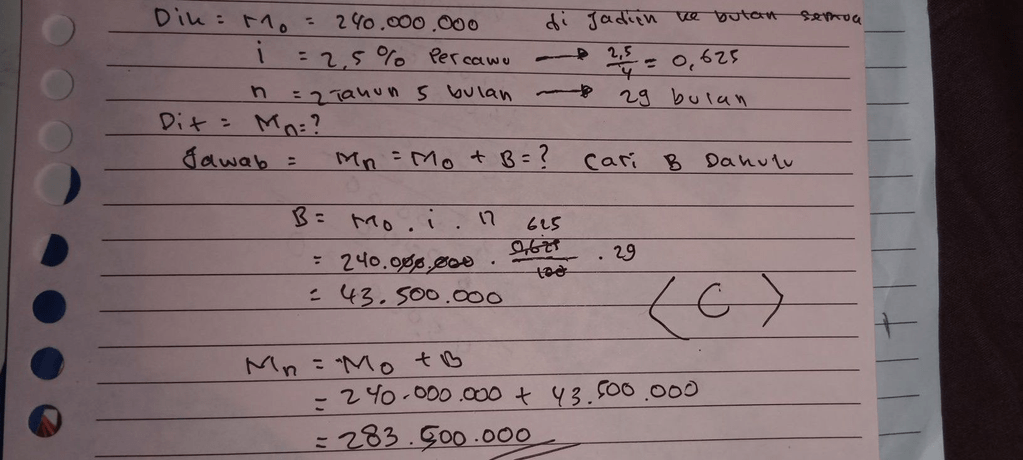 Dik = Mo = 240.000.000 di Jadiin ke bulan semua
i = 2,5 % Percawu → 2,5/4 = 0,625
n = 2 Tahun 5 bulan → 29 bulan
Dit = Mn=?
Jawab = Mn = Mo + B = ? Cari B Dahulu
B = Mo . i . n
= 240.000.000 . 0,625/100 . 29 625
= 43.500.000
< C >
Mn = Mo + B
= 240.000.000 + 43.500.000
= 283.500.000